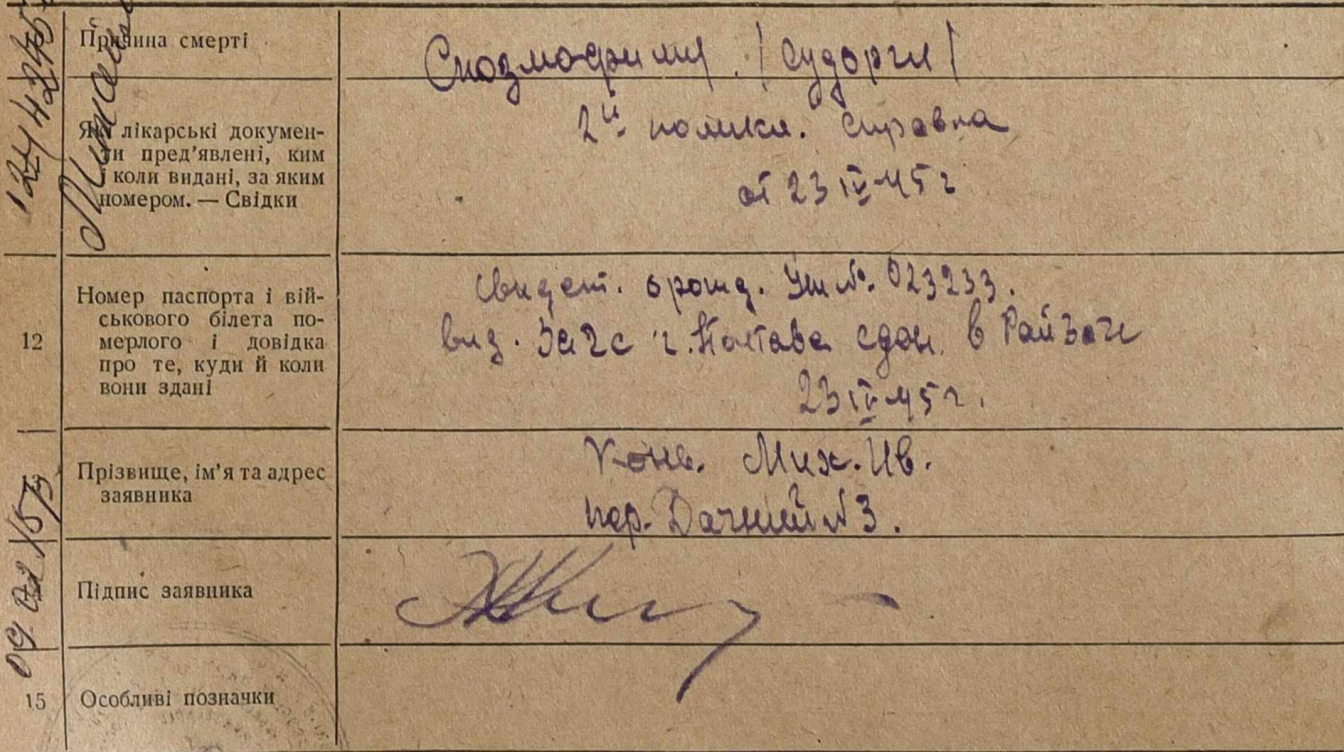 Причина смерті
Спозмофилия /судорги/
Які лікарські докумен-
ти пред’явлені, ким
і коли видані, за яким
номером. — Свідки
2й поликл. справка
от 23 IV 45 г
12
Номер паспорта і вій-
ськового білета по-
мерлого і довідка
про те, куди й коли
вони здані
свидет. о рожд. № 023233.
выд. Загс г. Полтава сдан. в РайЗагс
23 IV 45 г.
Прізвище, ім’я та адрес
заявника
Мих. Ив.
пер. Дачний N 3.
Підпис заявника
15
Особливі позначки